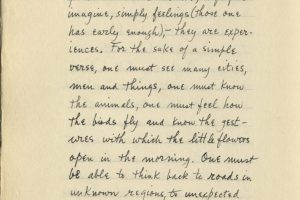 imagine, simply feelings (those one
has early enough), – they are exper-
iences. For the sake of a simple
verse, one must see many cities,
men and things, one must know
the animals, one must feel how
the birds fly and know the gest-
ures with which the little flowers
open in the morning. One must
be able to think back to roads in
unknown regions, to unexpected